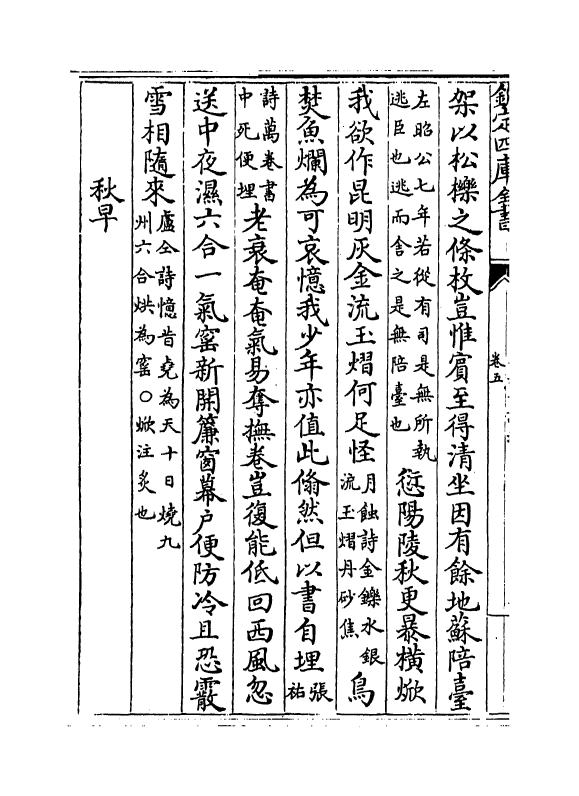 欽定四庫全書
卷五
架以松櫟之條枚豈惟賓至得清坐因有餘地蘇陪臺
左昭公七年若從有司是無所執
逃臣也逃而舍之是無陪臺也
愆陽陵秋更暴橫焮
我欲作昆明灰金流玉熠何足怪
月蝕詩金鑠水銀
流玉熠丹砂焦
鳥
焚魚爛為可哀憶我少年亦值此翛然但以書自埋
張
祐
詩萬卷書
中死便埋
老衰奄奄氣易奪撫卷豈復能低回西風忽
送中夜濕六合一氣窑新開簾窗幕户便防冷且恐霰
雪相隨來
盧仝詩憶昔堯為天十日燒九
州六合烘為窑○焮注炙也
秋早